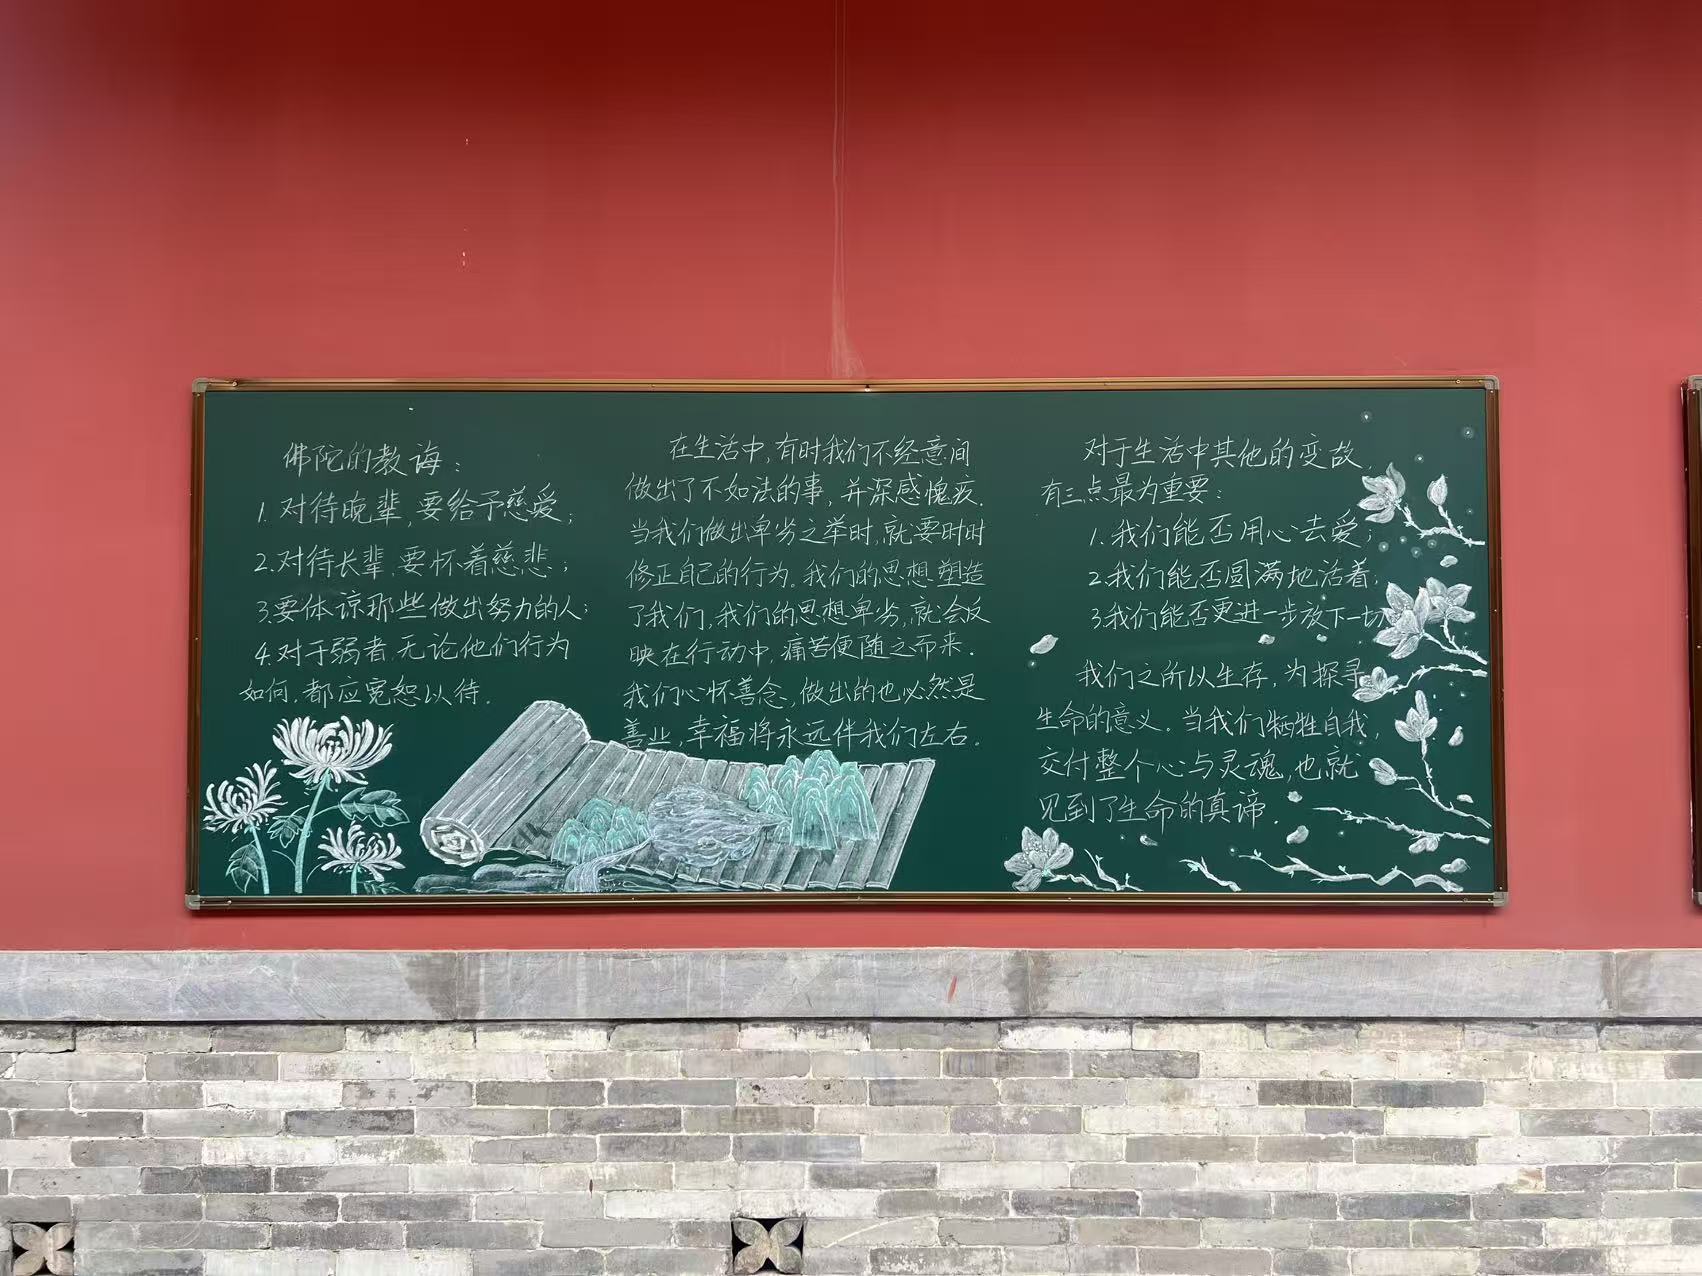 佛陀的教诲：
1. 对待晚辈，要给予慈爱；
2. 对待长辈，要怀着慈悲；
3. 要体谅那些做出努力的人；
4. 对于弱者，无论他们行为
如何，都应宽恕以待．
在生活中，有时我们不经意间
做出了不如法的事，并深感愧疚．
当我们做出卑劣之举时，就要时时
修正自己的行为。我们的思想塑造
了我们，我们的思想卑劣，就会反
映在行动中，痛苦便随之而来．
我们心怀善念，做出的也必然是
善业，幸福将永远伴我们左右．
对于生活中其他的变故，
有三点最为重要：
1. 我们能否用心去爱；
2. 我们能否圆满地活着；
3. 我们能否更进一步放下一切
我们之所以生存，为探寻
生命的意义。当我们牺牲自我，
交付整个心与灵魂，也就
见到了生命的真谛．